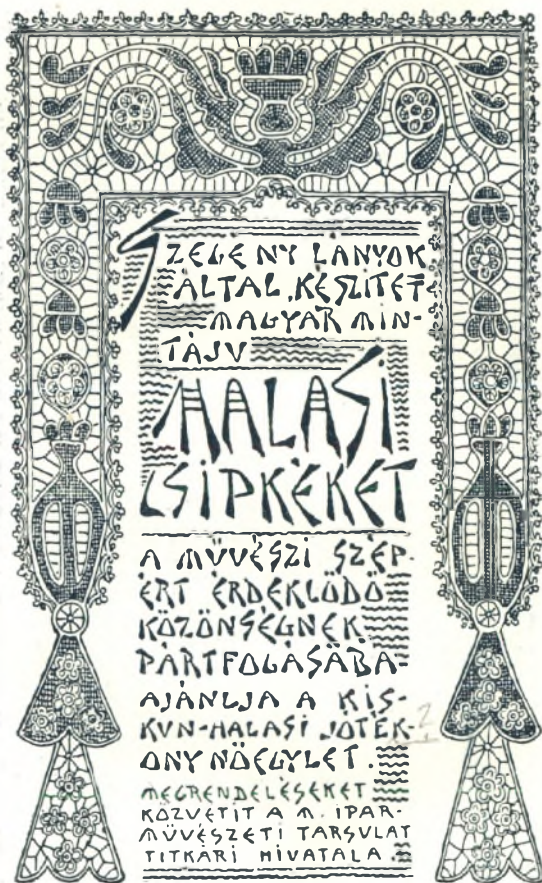 SZEGÉNY LANYOK
ÁLTAL KÉSZITET
MAGYAR MIN-
TÁJU
HALASI
CSIPKÉKET
A MŰVÉSZI SZÉP-
ÉRT ÉRDEKLŐDŐ
KÖZÖNSÉGNEK
PÁRTFOGÁSÁBA
AJÁNLJA A KIS-
KUN-HALASI JÓTÉK-
ONY NŐEGYLET.
MEGRENDELÉSEKET
KÖZVETIT A M. IPAR-
MŰVÉSZETI TARSULAT
TITKÁRI HIVATALA.